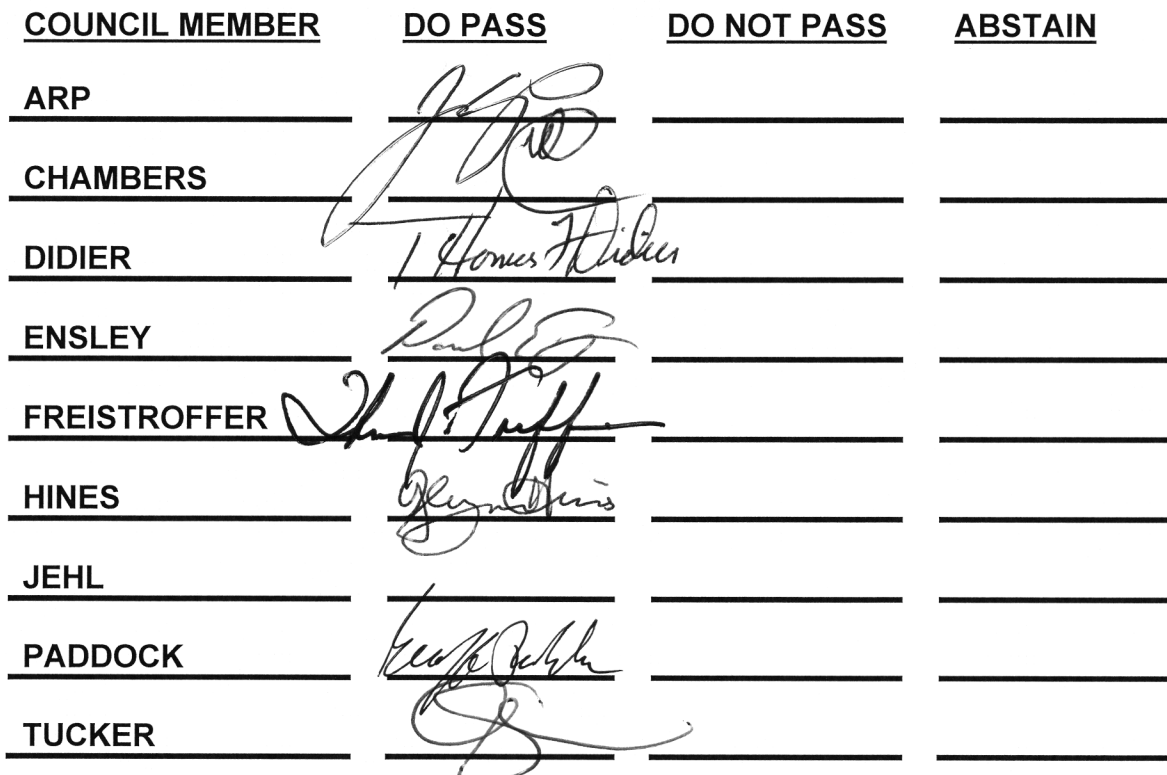 COUNCIL MEMBER DO PASS DO NOT PASS ABSTAIN
ARP
CHAMBERS
DIDIER Thomas F Didier
ENSLEY Paul
FREISTROFFER
HINES Glynn Hines
JEHL
PADDOCK
TUCKER